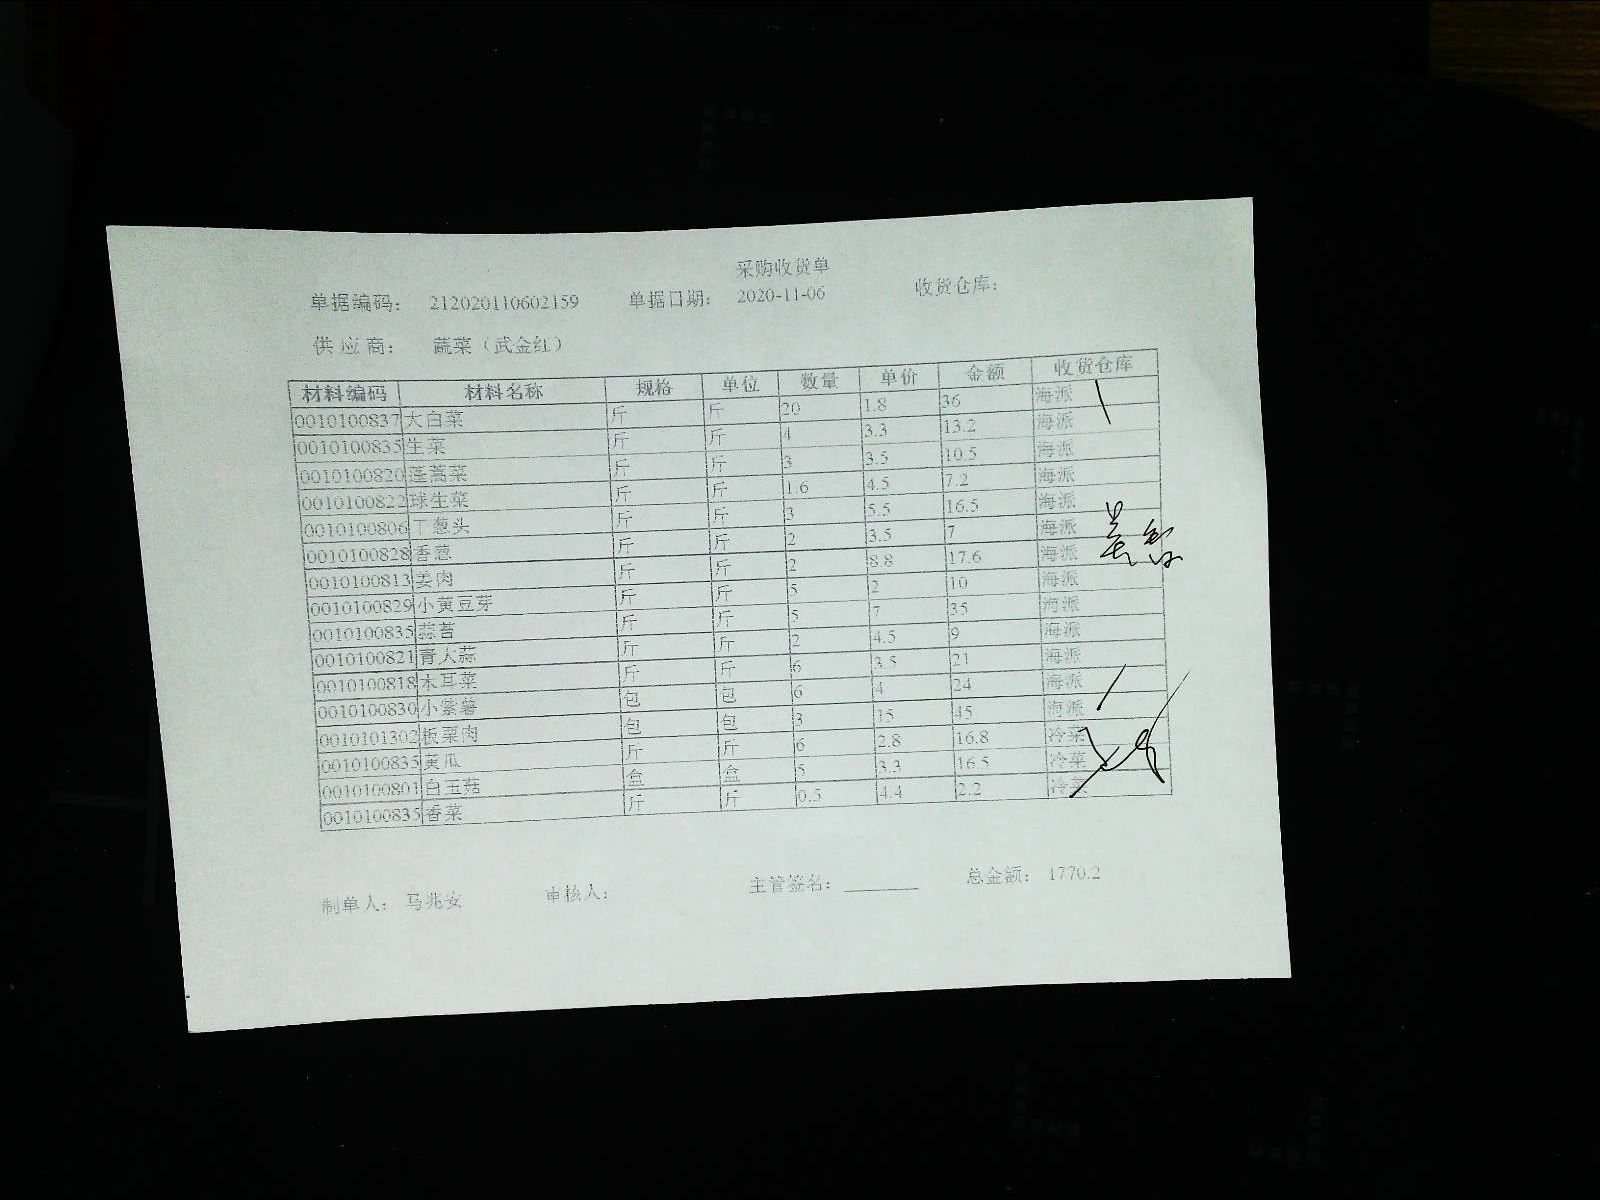 采购收货单
单据编码: 212020110602159 单据日期: 2020-11-06 收货仓库:
供应商: 蔬菜（武金红）
材料编码 材料名称 规格 单位 数量 单价 金额 收货仓库
0010100837 大白菜 斤 斤 20 1.8 36 海派
0010100835 生菜 斤 斤 4 3.3 13.2 海派
0010100820 蓬蒿菜 斤 斤 3 3.5 10.5 海派
0010100822 球生菜 斤 斤 1.6 4.5 7.2 海派
0010100806 干葱头 斤 斤 3 5.5 16.5 海派
0010100828 香葱 斤 斤 2 3.5 7 海派
0010100813 姜肉 斤 斤 2 8.8 17.6 海派
0010100829 小黄豆芽 斤 斤 5 2 10 海派
0010100835 蒜苔 斤 斤 5 7 35 海派
0010100821 青大蒜 斤 斤 2 4.5 9 海派
0010100818 木耳菜 斤 斤 6 3.5 21 海派
0010100830 小紫薯 包 包 6 4 24 海派
0010101302 板栗肉 包 包 3 15 45 海派
0010100835 黄瓜 斤 斤 6 2.8 16.8 冷菜
0010100801 白玉菇 盒 盒 5 3.3 16.5 冷菜
0010100835 香菜 斤 斤 0.5 4.4 2.2 冷菜
制单人: 马兆安 审核人: 主管签名: 总金额: 1770.2